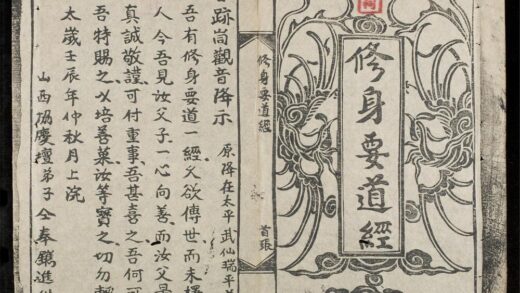 修身要道經
修身要道經 首張
跡崗觀音降示 原降在太平武仙瑞平
吾有修身要道一經久欲傳世而未擇
人今吾見汝父子一心向善而汝父是
真誠敬謹可付重事吾甚喜之吾何可
吾特賜之以培善菓汝等寶之切勿輕
太歲壬辰年仲秋月上浣
山西協慶壇弟子仝奉鐫進